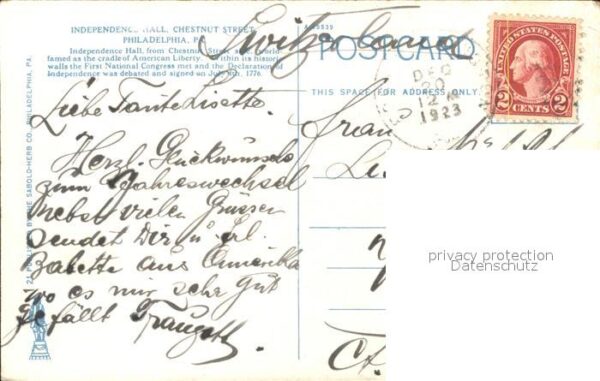 INDEPENDENCE HALL, CHESTNUT STREET,
PHILADELPHIA, PA.
Independence Hall, from Chestnut Street and world-
famed as the cradle of American Liberty. Within its historic
walls the First National Congress met and the Declaration of
Independence was debated and signed on July 4th, 1776.
Switzerland
POSTCARD
THIS SPACE FOR ADDRESS ONLY.
DEC
12 M
1923
UNITED STATES POSTAGE
2 CENTS 2
PUBLISHED BY THE SABOLD-HERB CO., PHILADELPHIA, PA.
Liebe Tante Lisette.
Herzl. Glückwunsch
zum Jahreswechsel
nebst vielen Grüssen
sendet Dir u. Frl.
Babette aus Amerika
wo es mir sehr gut
gefällt Traugott.
Frau
privacy protection
Datenschutz